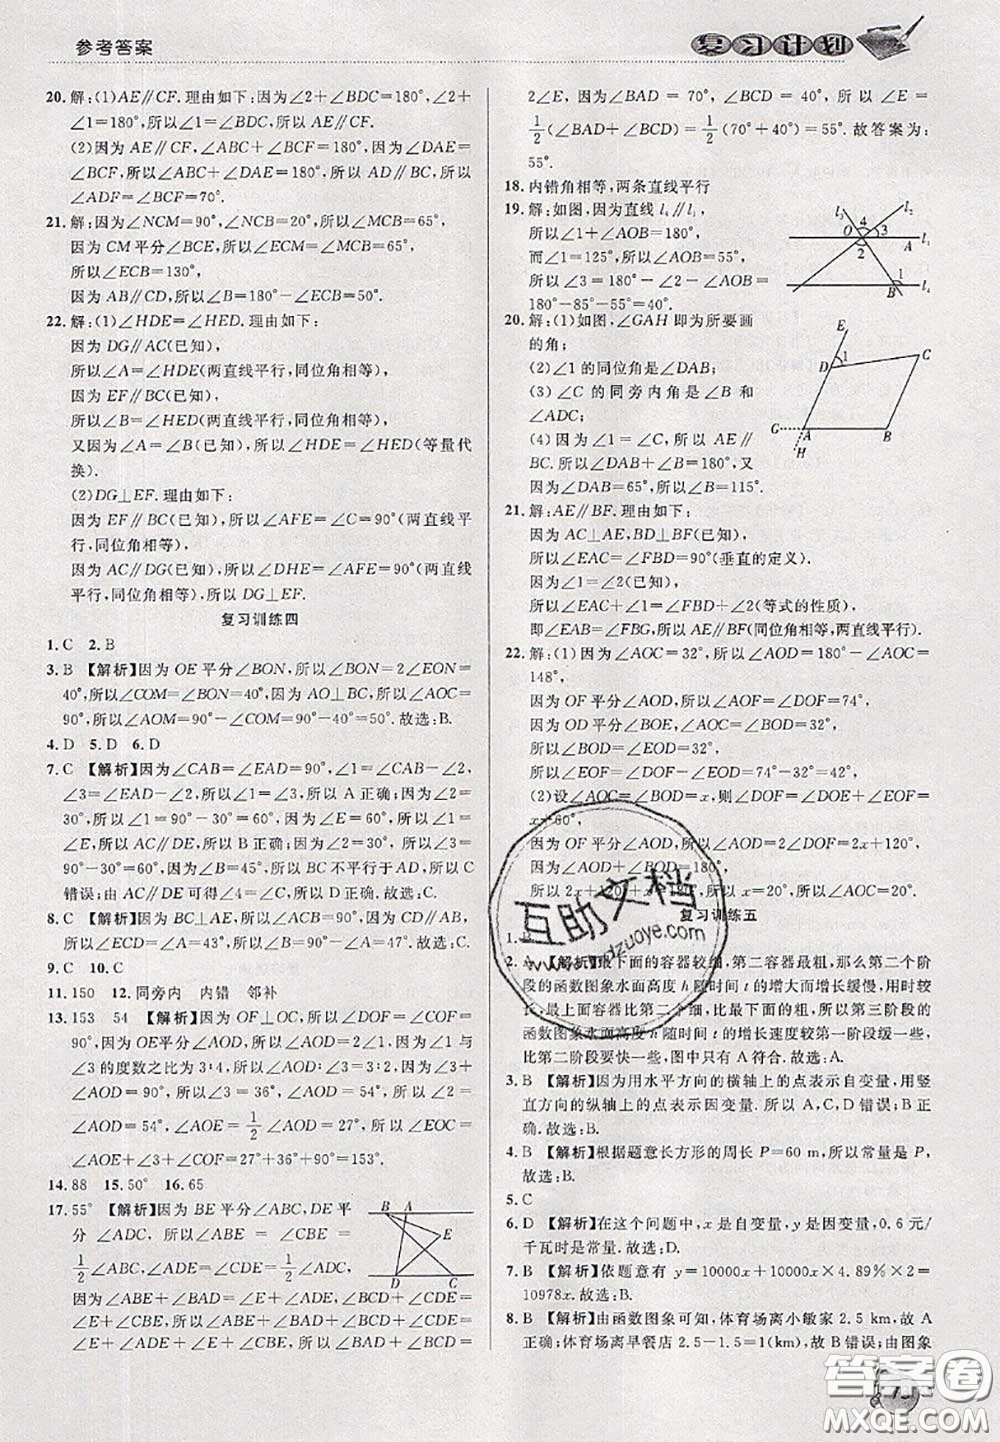 参考答案
复习计划
20. 解:(1)AE∥CF. 理由如下:因为∠2+∠BDC=180°,∠2+
∠1=180°,所以∠1=∠BDC,所以 AE∥CF.
(2)因为 AE∥CF,∠ABC+∠BCF=180°,因为∠DAE=
∠BCF,所以∠ABC+∠DAE=180°,所以 AD∥BC,所以
∠ADF=∠BCF=70°.
21. 解:因为∠NCM=90°,∠NCB=20°,所以∠MCB=65°,
因为 CM 平分∠BCE,所以∠ECM=∠MCB=65°,
所以∠ECB=130°,
因为 AB∥CD,所以∠B=180°-∠ECB=50°.
22. 解:(1)∠HDE=∠HED. 理由如下:
因为 DG∥AC(已知),
所以∠A=∠HDE(两直线平行,同位角相等),
因为 DH∥BC(已知),
所以∠B=∠HED(两直线平行,同位角相等),
又因为∠A=∠B(已知),所以∠HDE=∠HED(等量代
换).
(2)DG⊥EF. 理由如下:
因为 EF∥BC(已知),所以∠AFE=∠C=90°(两直线平
行,同位角相等),
因为 AC∥DG(已知),所以∠DHE=∠AFE=90°(两直线
平行,同位角相等),所以 DG⊥EF.
复习训练四
1. C 2. B
3. B 【解析】因为 OE 平分∠BON,所以∠BON=2∠EON=
40°,所以∠COM=∠BON=40°,因为 AO⊥BC,所以∠AOC=
90°,所以∠AOM=90°-∠COM=90°-40°=50°. 故选:B.
4. D 5. D 6. D
7. C 【解析】因为∠CAB=∠EAD=90°,∠1=∠CAB-∠2,
∠3=∠EAD-∠2,所以∠1=∠3,所以 A 正确;因为∠2=
30°,所以∠1=90°-30°=60°,因为∠E=60°,所以∠1=
∠E,所以 AC∥DE,所以 B 正确;因为∠2=30°,所以∠3=
90°-30°=60°,因为∠B=45°,所以 BC 不平行于 AD,所以 C
错误;由 AC∥DE 可得∠4=∠C,所以 D 正确. 故选:C.
8. C 【解析】因为 BC⊥AE,所以∠BCE=90°,因为 CD∥AB,所
以∠ECD=∠A=43°,所以∠BCD=90°-43°=47°. 故选:C.
9. C 10. C
11. 150 12. 同旁内 内错 邻补
13. 153 54 【解析】因为 OF⊥OC,所以∠DOF=∠COF=
90°,因为 OE平分∠AOD,所以∠AOD=2∠1,因为∠1 与
∠3 的度数之比为 3∶4,所以∠AOD∶∠3=3∶2,所以
∠AOD=54°,所以∠3=36°,因为∠AOD=54°,所以∠2=
∠AOD=54°,∠AOE=1/2∠AOD=27°,所以∠EOC=
∠AOE+∠3+∠COF=27°+36°+90°=153°.
14. 88 15. 50° 16. 65
17. 55° 【解析】因为 BE 平分∠ABC,DE平
分∠ADC,所以∠ABE=∠CBE=
1/2∠ABC,∠ADE=∠CDE=1/2∠ADC,
因为∠ABE+∠BAD=∠E+∠ADE,∠BCD+∠CDE=
∠E+∠CBE,所以∠ABE+∠BAD+∠BCD+∠CDE=
∠E+∠ADE+∠E+∠CBE,所以∠BAD+∠BCD=
B A E D C
2∠E,因为∠BAD=70°,∠BCD=40°,所以∠E=
1/2(∠BAD+∠BCD)=1/2(70°+40°)=55°. 故答案为:
55°.
18. 内错角相等,两条直线平行
19. 解:如图,因为直线 l₄∥l₁,
所以∠1+∠AOB=180°,
而∠1=125°,所以∠AOB=55°,
所以∠3=180°-∠2-∠AOB=
180°-85°-55°=40°.
l₃ l₂ O 4 3 2 A l₁ 1 B l₄
20. 解:(1)如图,∠GAH 即为所要画
的角;
(2)∠1的同位角是∠DAB;
(3)∠C 的同旁内角是∠B 和
∠ADC;
(4)因为∠1=∠C,所以 AE∥
BC. 所以∠DAB+∠B=180°,又
因为∠DAB=65°,所以∠B=115°.
E D 1 C G A H B
21. 解:AE∥BF. 理由如下:
因为 AC⊥AE,BD⊥BF(已知),
所以∠EAC=∠FBD=90°(垂直的定义).
因为∠1=∠2(已知),
所以∠EAC+∠1=∠FBD+∠2(等式的性质),
即∠EAB=∠FBG,所以AE∥BF(同位角相等,两直线平行).
22. 解:(1)因为∠AOC=32°,所以∠AOD=180°-∠AOC=
148°,
因为 OF 平分∠AOD,所以∠AOF=∠DOF=74°,
因为 OD 平分∠BOE,∠AOC=∠BOD=32°,
所以∠BOD=∠EOD=32°,
所以∠EOF=∠DOF-∠EOD=74°-32°=42°.
(2)设∠AOC=∠BOD=x,则∠DOF=∠DOE+∠EOF=
x+60°,
因为 OF 平分∠AOD,所以∠AOD=2∠DOF=2x+120°,
因为∠AOD+∠BOD=180°,
所以 2x+120°+x=180°,所以 x=20°,所以∠AOC=20°.
复习训练五
1. B
2. A 【解析】最下面的容器较细,第二容器最粗,那么第二个阶
段的函数图象水面高度 h 随时间 t 的增大而增长缓慢,用时较
长,最上面容器比第二个细,但比最下面的粗,所以第三阶段的
函数图象水面高度 h 随时间 t 的增长速度较第一阶段缓一些,
比第二阶段要快一些,图中只有 A 符合. 故选:A.
3. B 【解析】因为用水平方向的横轴上的点表示自变量,用竖
直方向的纵轴上的点表示因变量. 所以 A,C,D 错误;B 正
确. 故选:B.
4. B 【解析】根据题意长方形的周长 P=60 m,所以常量是 P,
故选:B.
5. C
6. D 【解析】在这个问题中,x 是自变量,y 是因变量,0.6 元/
千瓦时是常量. 故选:D.
7. B 【解析】依题意有 y=10000x+10000x×4.89%×2=
10978x. 故选:B.
8. B 【解析】由函数图象可知,体育场离小敏家 2.5 km,故 A
正确;体育场离早餐店 2.5-1.5=1(km),故 B 错误;由图象
互助文档
www.hdzuoye.com
答案圈
MXQE.COM